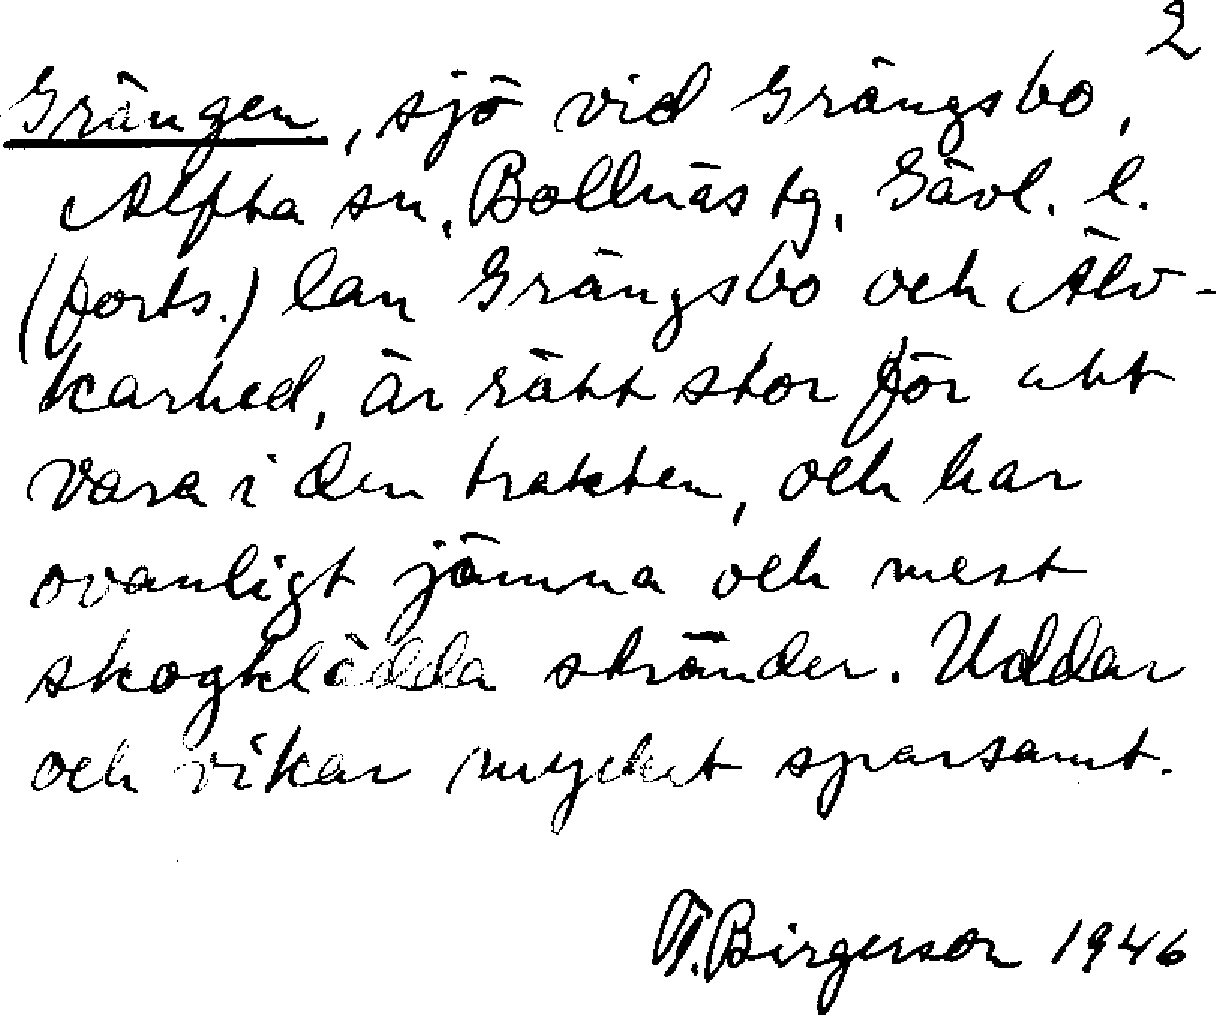 2
Grängen, sjö vid Grängsbo,
Alfta sn, Bollnäs tg, Gävl. l.
(forts.) lan Grängsbo och Älv-
karhed, är rätt stor för att
vara i den trakten, och har
ovanligt jämna och mest
skogklädda stränder. Uddar
och vikar mycket sparsamt.
T. Birgerson 1946